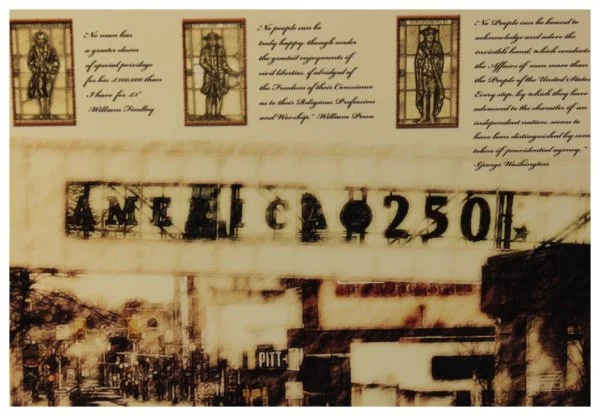 "No man has
a greater claim
of special privilege
for his £100,000 than
I have for £5"
-William Findley
"No people can be
truly happy, though under
the greatest enjoyments of
civil liberties, if abridged of
the Freedom of their Conscience
as to their Religious Profession
and Worship." William Penn
"No People can be bound to
acknowledge and adore the
invisible hand, which conducts
the Affairs of men more than
the People of the United States.
Every step, by which they have
advanced to the character of an
independent nation, seems to
have been distinguished by some
token of providential agency."
-George Washington
AMERICA@250
PITT-